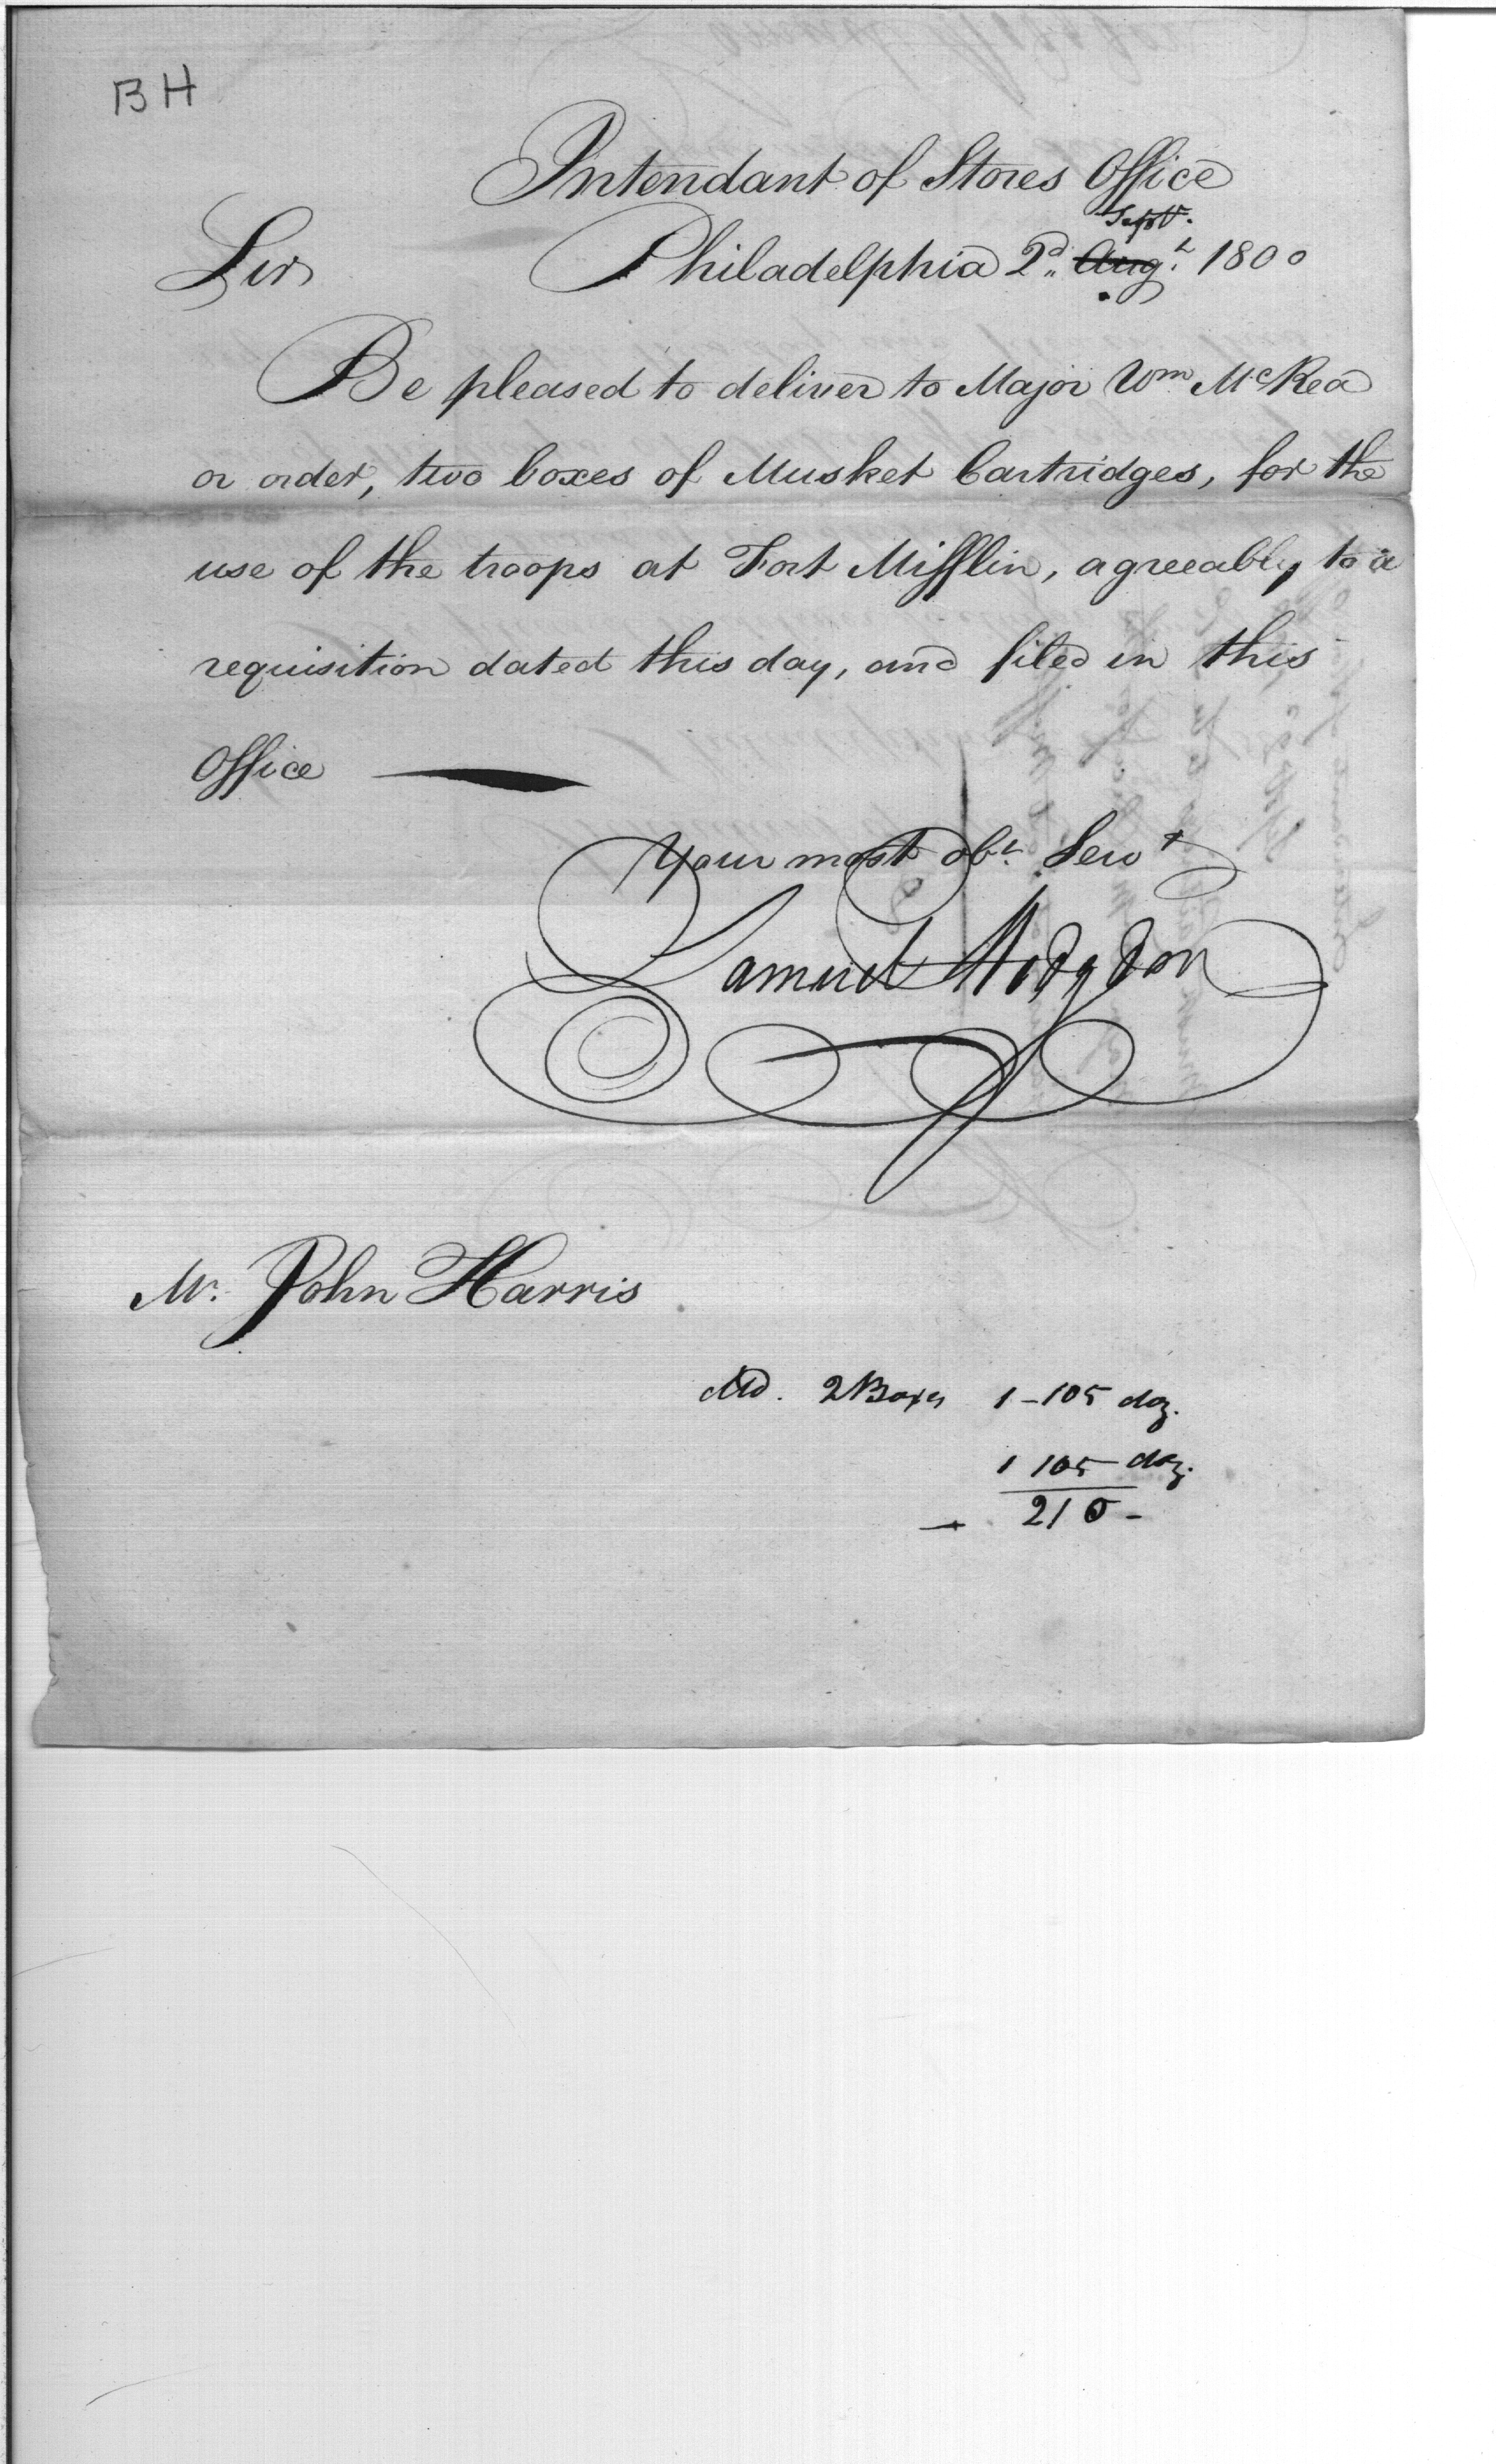 BH
Intendant of Stores Office
Sir Philadelphia 2d Sept. Augt. 1800
Be pleased to deliver to Major Wm McRea
or order, two boxes of Musket Cartridges, for the
use of the troops at Fort Mifflin, agreeably to a
requisition dated this day, and filed in this
Office
Your most obt. Servt
Samuel Hodgdon
Mr. John Harris
2 Boxes 1-105 doz.
1 105 doz.
210-